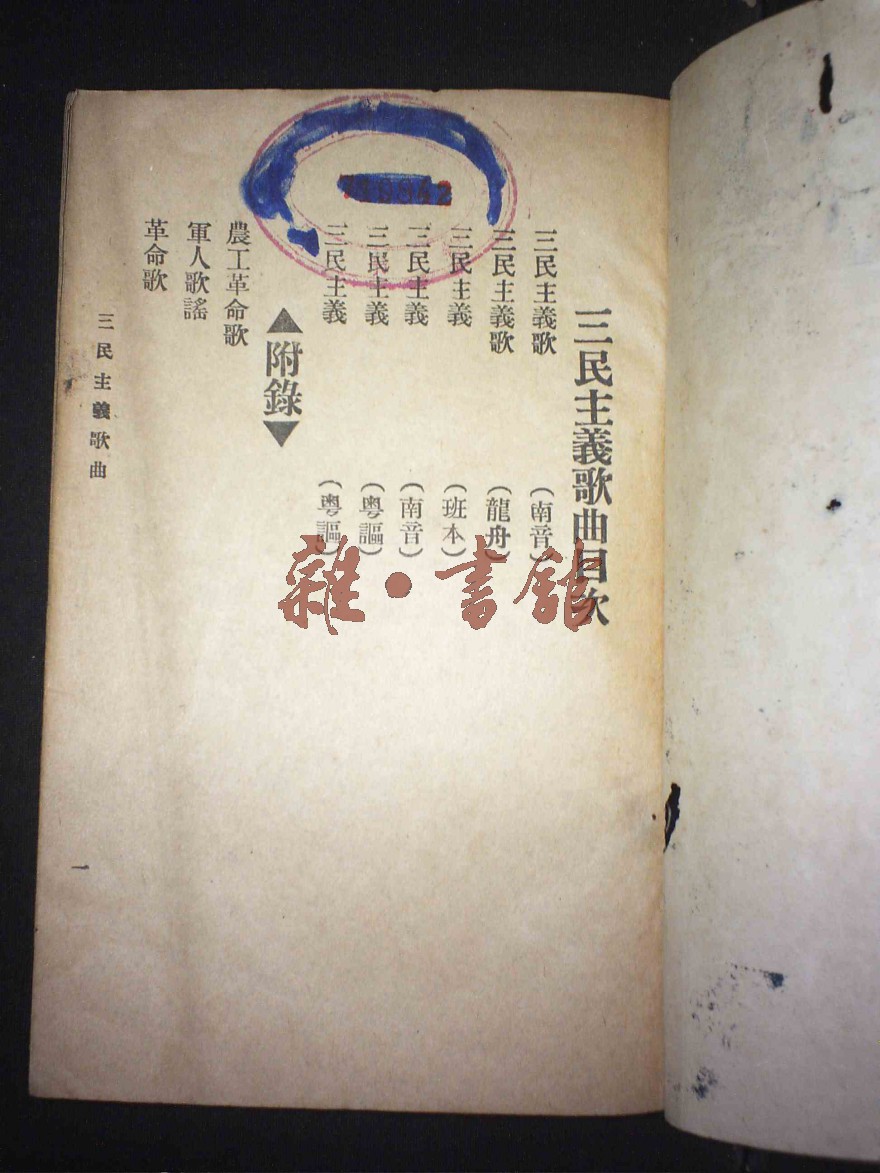 三民主義歌曲目次
三民主義歌 （南音）
三民主義歌 （龍舟）
三民主義 （班本）
三民主義 （南音）
三民主義 （粵謳）
三民主義 （粵謳）
▲附錄▼
農工革命歌
軍人歌謠
革命歌
三民主義歌曲
一
雜·書館